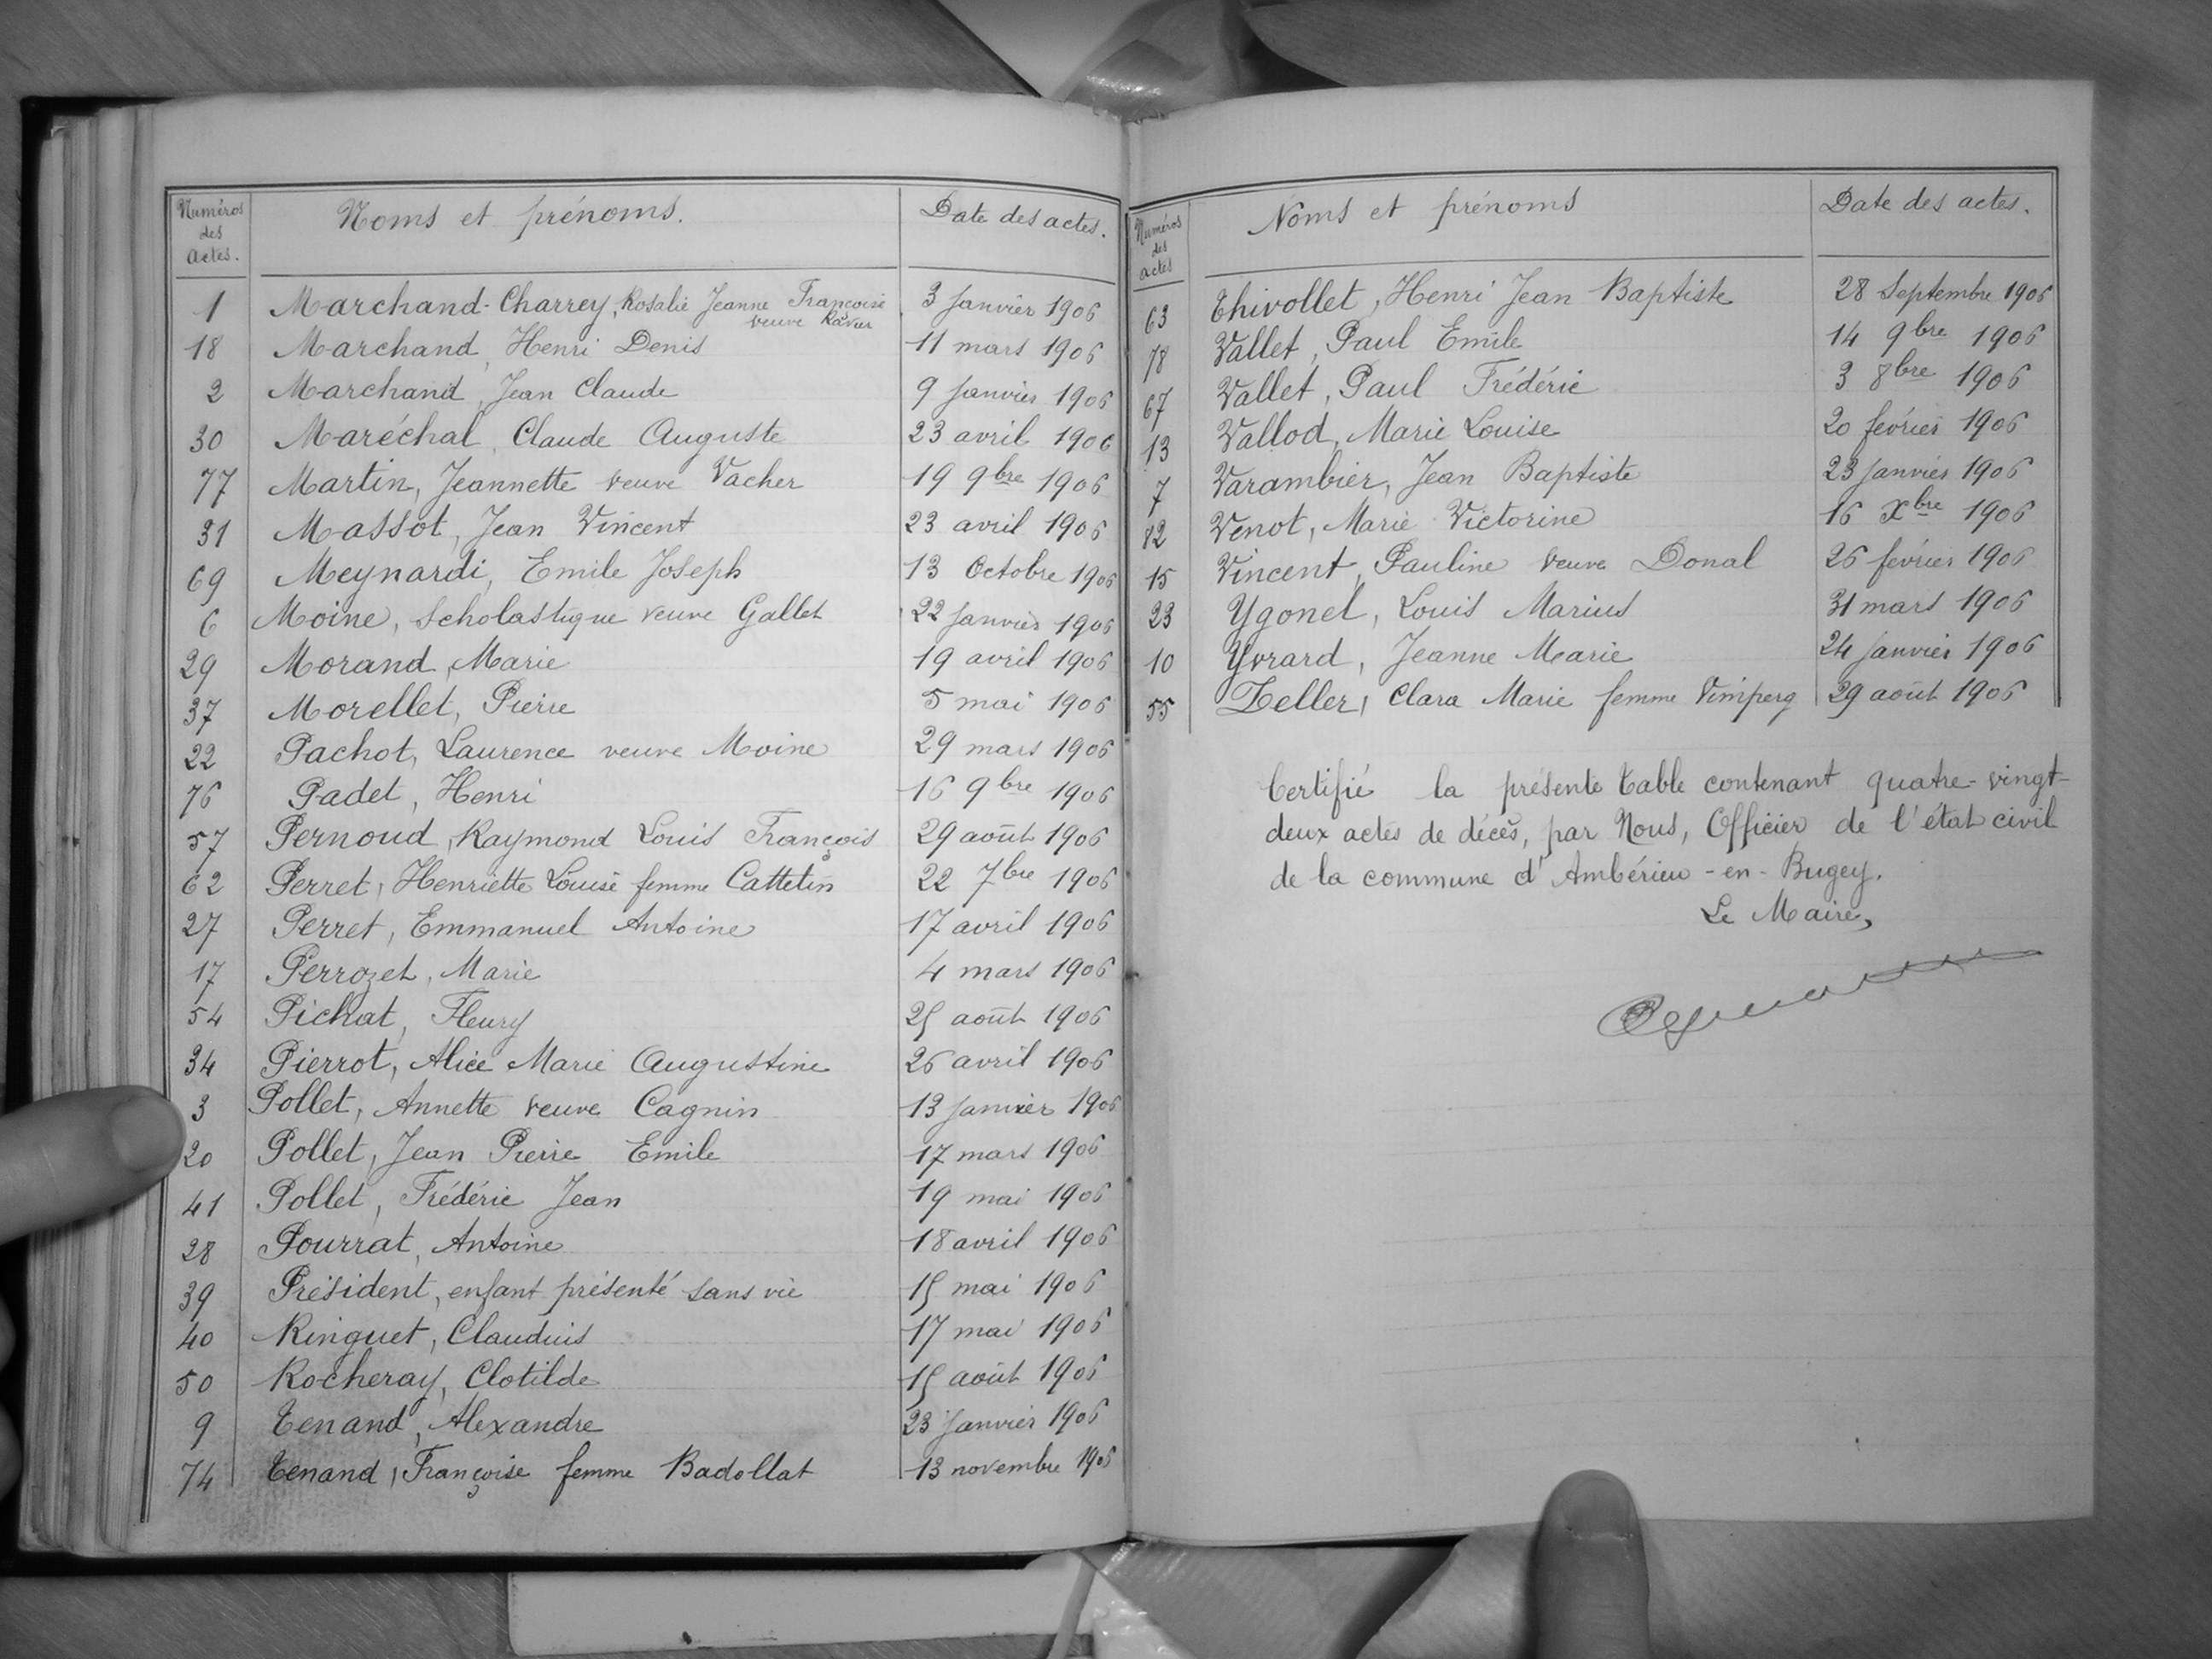 Numéros des Actes. Noms et prénoms. Date des actes.
1 Marchand-Charrey, Rosalie Jeanne Françoise 3 Janvier 1906
veuve Ravier
18 Marchand, Henri Denis 11 mars 1906
2 Marchand, Jean Claude 9 Janvier 1906
30 Maréchal, Claude Auguste 23 avril 1906
77 Martin, Jeannette veuve Vacher 19 9bre 1906
31 Massot, Jean Vincent 23 avril 1906
69 Meynardi, Emile Joseph 13 Octobre 1906
6 Moine, Scholastique veuve Gallet 22 Janvier 1906
29 Morand, Marie 19 avril 1906
37 Morellet, Pierre 5 mai 1906
22 Pachot, Laurence veuve Moine 29 mars 1906
76 Padet, Henri 16 9bre 1906
57 Pernoud, Raymond Louis François 29 août 1906
62 Perret, Henriette Louise femme Cattetin 22 7bre 1906
27 Perret, Emmanuel Antoine 17 avril 1906
17 Perrozet, Marie 4 mars 1906
54 Pichat, Fleury 25 août 1906
34 Pierrot, Alice Marie Augustine 26 avril 1906
3 Pollet, Annette veuve Cagnin 13 Janvier 1906
20 Pollet, Jean Pierre Emile 17 mars 1906
41 Pollet, Frédéric Jean 19 mai 1906
28 Pourrat, Antoine 18 avril 1906
39 Président, enfant présenté sans vie 15 mai 1906
40 Ringuet, Claudius 17 mai 1906
50 Rocheray, Clotilde 15 août 1906
9 Tenand, Alexandre 23 Janvier 1906
74 Tenand, Françoise femme Badollat 13 novembre 1906
Numéros des actes Noms et prénoms Date des actes.
63 Thivollet, Henri Jean Baptiste 28 Septembre 1906
78 Vallet, Paul Emile 14 9bre 1906
67 Vallet, Paul Frédéric 3 8bre 1906
13 Vallod, Marie Louise 20 février 1906
7 Varambier, Jean Baptiste 23 Janvier 1906
82 Venot, Marie Victorine 16 Xbre 1906
15 Vincent, Pauline veuve Donal 26 février 1906
23 Ygonel, Louis Marius 31 mars 1906
10 Yvrard, Jeanne Marie 24 Janvier 1906
55 Zeller, Clara Marie femme Vimperg 29 août 1906
Certifié la présente table contenant quatre-vingt-
deux actes de décès, par Nous, Officier de l'état civil
de la commune d'Ambérieu-en-Bugey.
Le Maire,